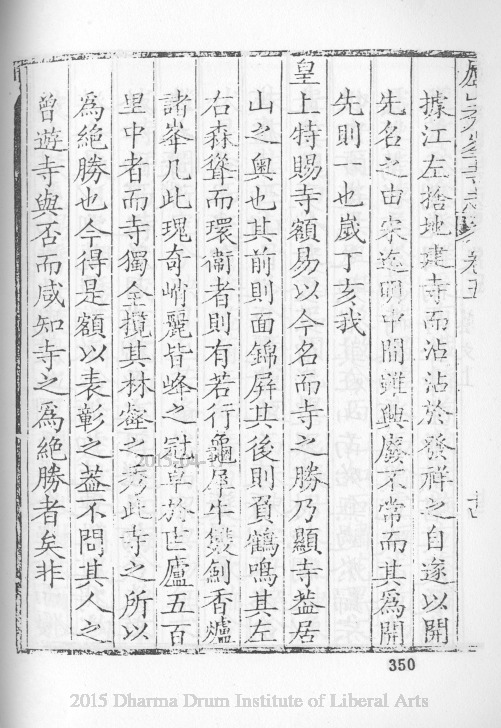 廬山秀峯寺志 卷五
據江左捨地建寺而沾沾於發祥之自遂以開
先名之由宋迄明中間雖興廢不常而其爲開
先則一也歲丁亥我
皇上特賜寺額易以今名而寺之勝乃顯寺蓋居
山之奧也其前則面錦屏其後則負鶴鳴其左
右森聳而環衞者則有若行龜犀牛雙劍香爐
諸峯凡此瑰奇峭麗皆峰之冠皇於匡廬五百
里中者而寺獨全攬其林壑之秀此寺之所以
爲絕勝也今得是額以表彰之蓋不問其人之
曾遊寺與否而咸知寺之爲絕勝者矣非
350
2015 Dharma Drum Institute of Liberal Arts